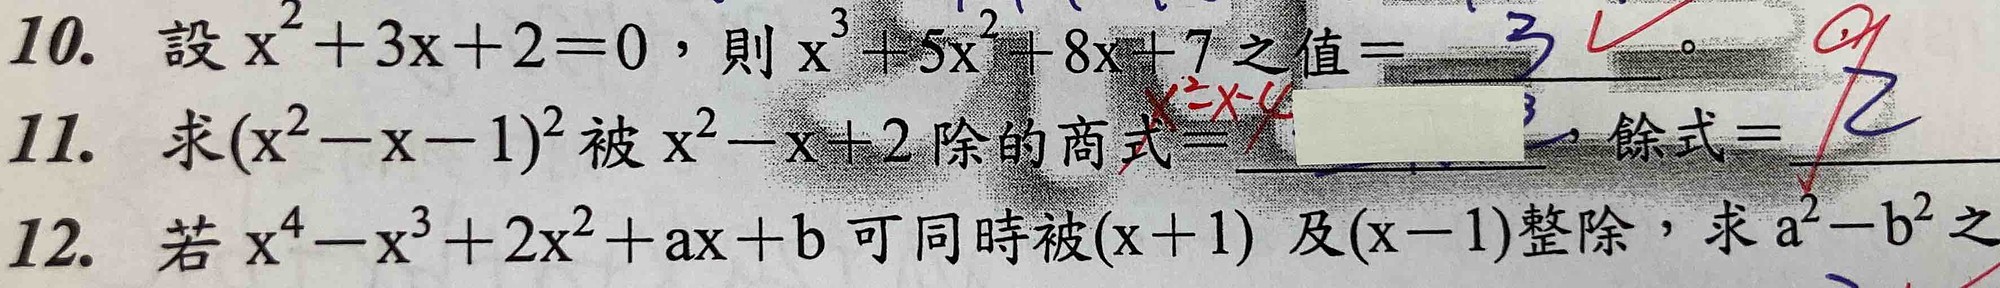 10. 設 x²+3x+2=0，則 x³+5x²+8x+7 之值= 3 。
11. 求(x²−x−1)² 被 x²−x+2 除的商式= x²-x-4 ，餘式= 2 9
12. 若 x⁴−x³+2x²+ax+b 可同時被(x+1) 及(x−1)整除，求 a²−b² 之